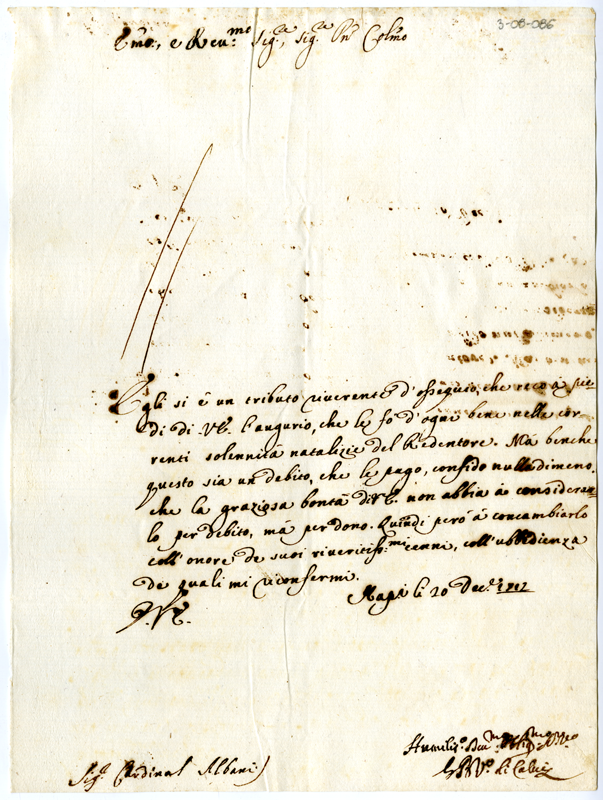 3-08-086
Emo, e Reu.mo Sig.re, sig.re Pn Colmo
Egli si è un tributo riuerente d'ossequio, che reco à pie-
di di V.E. l'augurio, che le fò d'ogni bene nella cor-
renti solennità natalizie del Redentore. Mà benche
questo sia un debito, che le pago, confido nulladimeno,
che la graziosa bontà di V.E. non abbia à considerar-
lo per debito, mà per dono. Quindi però à concambiarlo
coll'onore de suoi riueritiss.mi cenni, coll'ubbidienza
de quali mi riconfermi.
V.E.
li 20 Dec.e
Humiliss.o
di
Sig.r Cardinal Albani